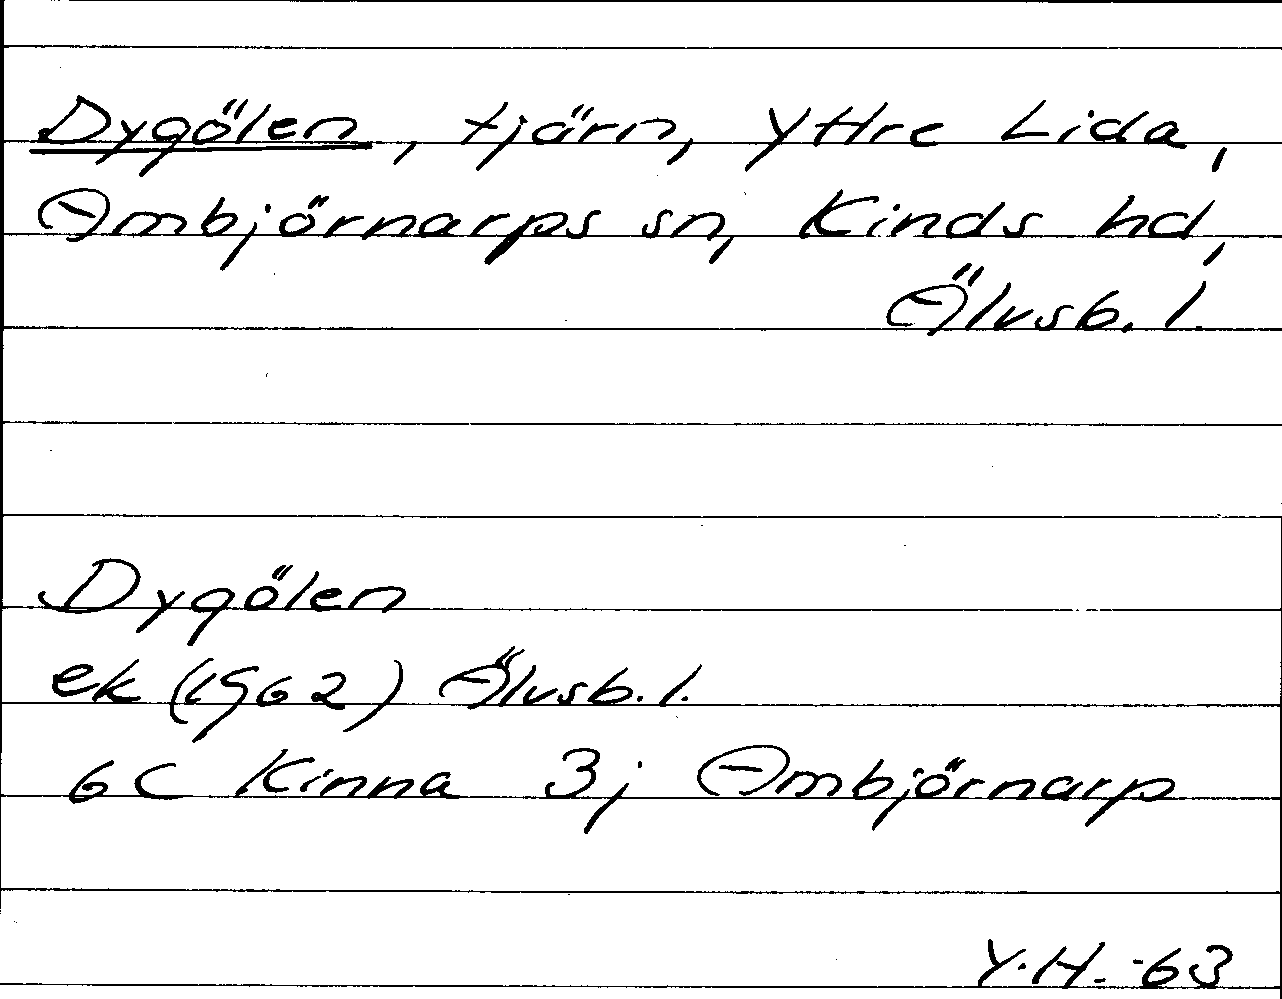 Dygölen, tjärn, Yttre Lida,
Ambjörnarps sn, Kinds hd,
Älvsb. l.
Dygölen
ek (1962) Älvsb. l.
6C Kinna 3j Ambjörnarp
Y.H. -63